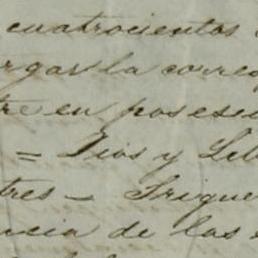 cuatrocientos
rgar la corres
re en posesi
= Dios y Lib
tres = Trigue
ncia de las